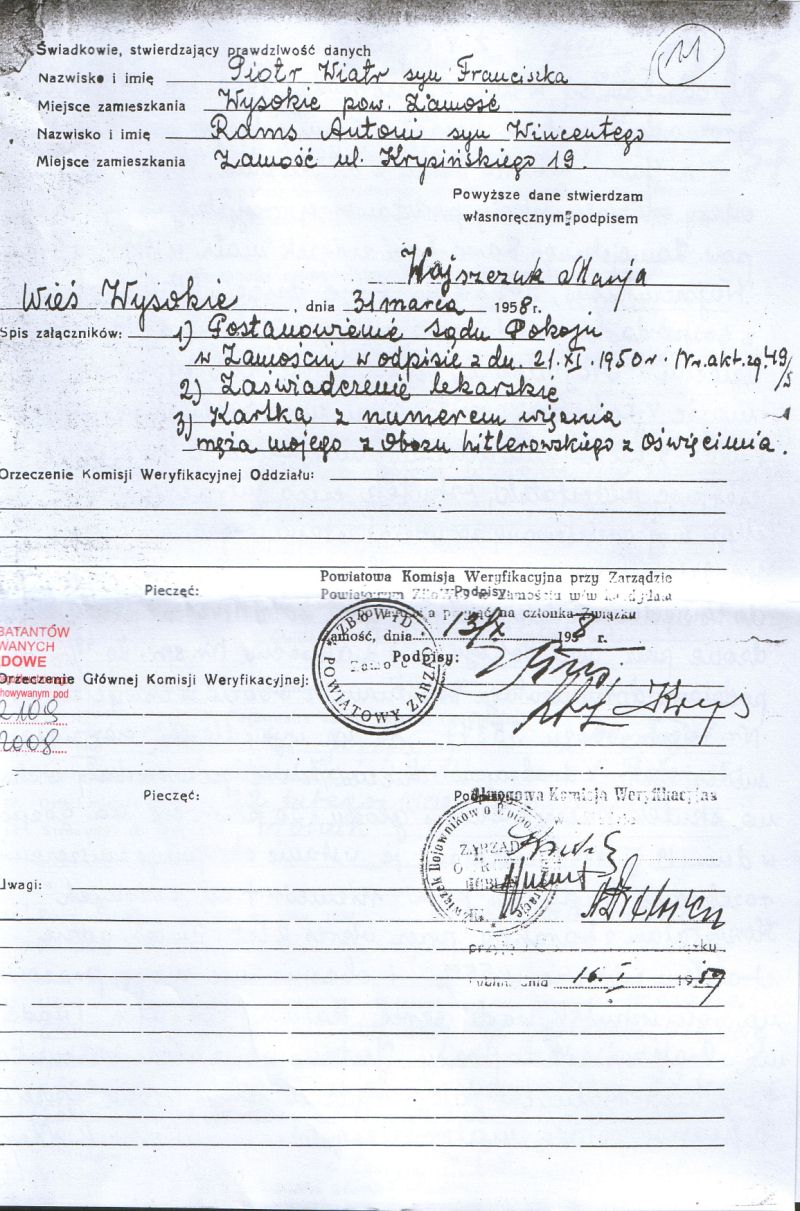 11
Świadkowie, stwierdzający prawdziwość danych
Nazwisko i imię Piotr Wiatr syn Franciszka
Miejsce zamieszkania Wysokie pow. Zamość
Nazwisko i imię Rams Antoni syn Wincentego
Miejsce zamieszkania Zamość ul. Krysińskiego 19.
Powyższe dane stwierdzam
własnoręcznym podpisem
Wajszczuk Marja
Wieś Wysokie, dnia 31 marca 1958 r.
Spis załączników: 1) Postanowienie Sądu Pokoju
w Zamościu w odpisie z dn. 21.XI.1950 r. Nr. akt. zg. 49/5
2) Zaświadczenie lekarskie
3) Kartka z numerem więzienia
męża mojego z Obozu hitlerowskiego z Oświęcimia.
Orzeczenie Komisji Weryfikacyjnej Oddziału:
Pieczęć:
Podpisy
Powiatowa Komisja Weryfikacyjna przy Zarządzie
Powiatowym ZBoWiD w Zamościu w/w kandydata
na członka Związku
Zamość, dnia 13/X 1958 r.
Podpisy:
ZBOWID
POWIATOWY ZARZĄD
BATANTÓW
WANYCH
DOWE
howywanym pod
2109
2008
Orzeczenie Głównej Komisji Weryfikacyjnej:
Pieczęć:
Okręgowa Komisja Weryfikacyjna
Związek Bojowników o Wolność
ZARZĄD
Uwagi:
dnia 16.I 1959